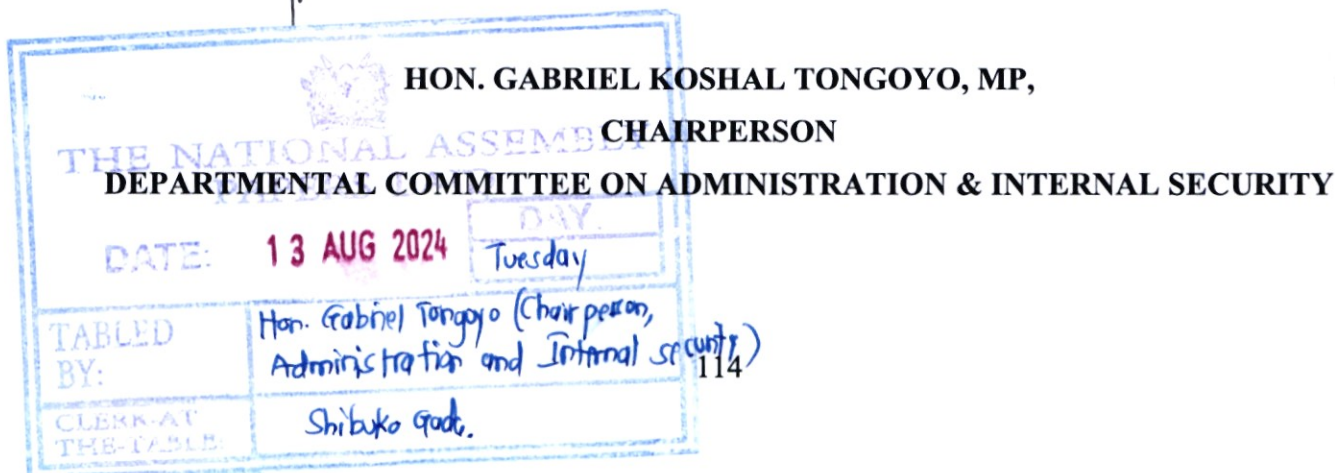 HON. GABRIEL KOSHAL TONGOYO, MP,
CHAIRPERSON
THE NATIONAL ASSEMBLY
DEPARTMENTAL COMMITTEE ON ADMINISTRATION & INTERNAL SECURITY
PAPERS LAID
DATE: 13 AUG 2024
DAY.
Tuesday
TABLED
BY:
Hon. Gabriel Tongoyo (Chairperson,
Administration and Internal security)
114
CLERK-AT
THE-TABLE:
Shibuko